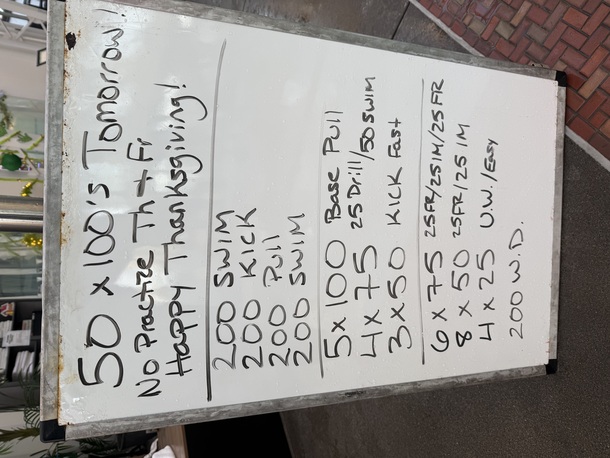 50 x 100's Tomorrow!
No Practice Th + Fr
Happy Thanksgiving!
200 SWIM
200 KICK
200 Pull
200 SWIM
5 x 100 Base Pull
4 x 75 25 Drill/50 SWIM
3 x 50 KICK Fast
6 x 75 25FR/25 IM/25 FR
8 x 50 25FR/25 IM
4 x 25 U.W./Easy
200 W.D.